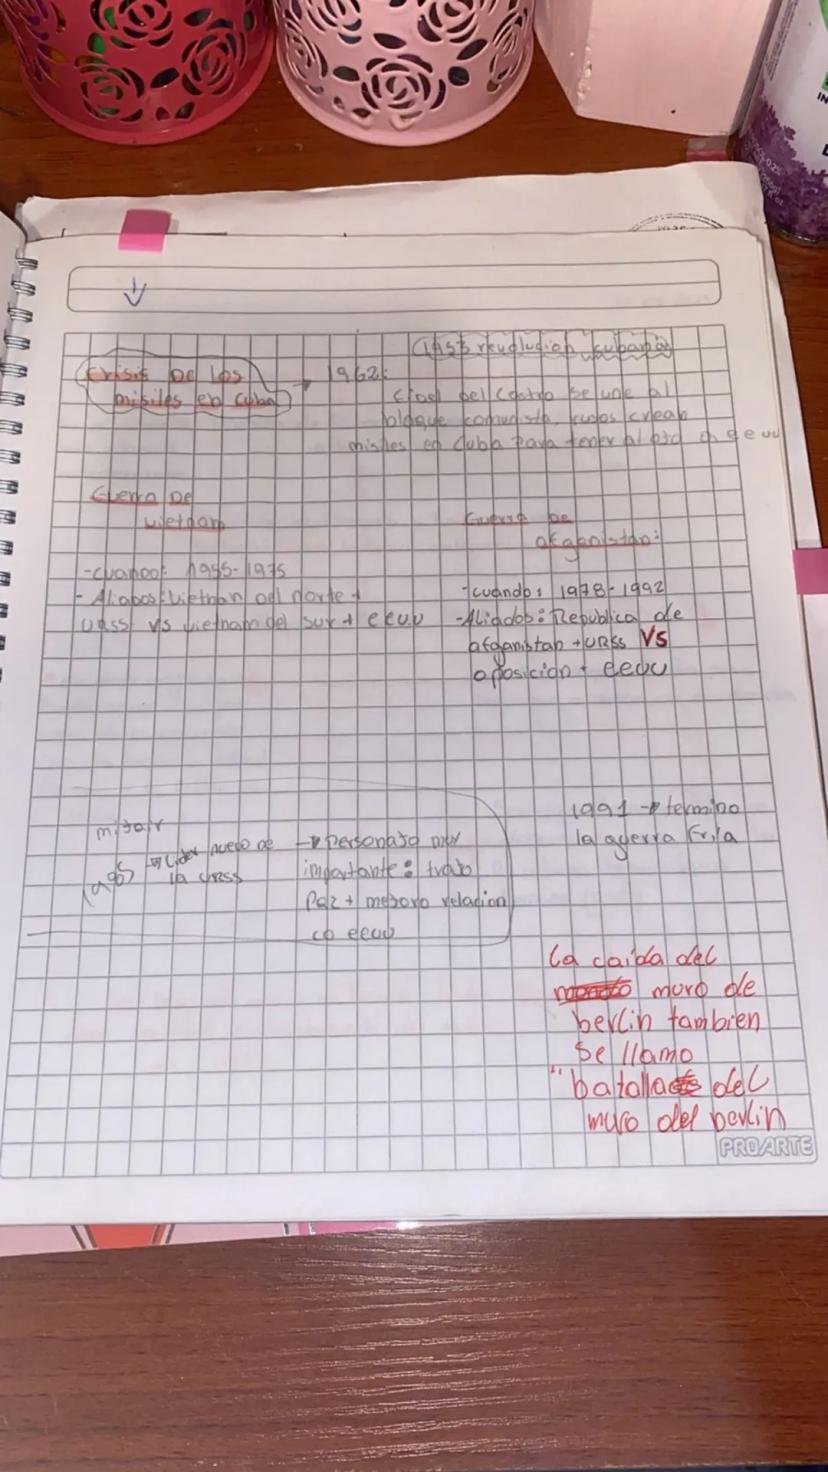 revolucion cubana
Crisis De los
misiles en Cuba
1962:
Fidel Del Castro se une al
bloque comunista, rusos crean
misiles en Cuba para tener al eeuu
Guerra De
Vietnam
-cuando: 1955-1975
- Aliados: Vietnam del norte +
URSS VS Vietnam del sur + eeuu
Guerra De
afganistan:
-cuando: 1978-1992
-Aliados: Republica de
afganistan + URSS VS
oposicion + eeuu
mijair
→ Lider nuevo de
la URSS
→ personaje muy
importante: trajo
Paz + mejoro relacion
co eeuu
1991 → termino
la guerra Fria
La caida del
muro de
berlin tambien
se llamo
"batalla del
muro del berlin
PROARTE